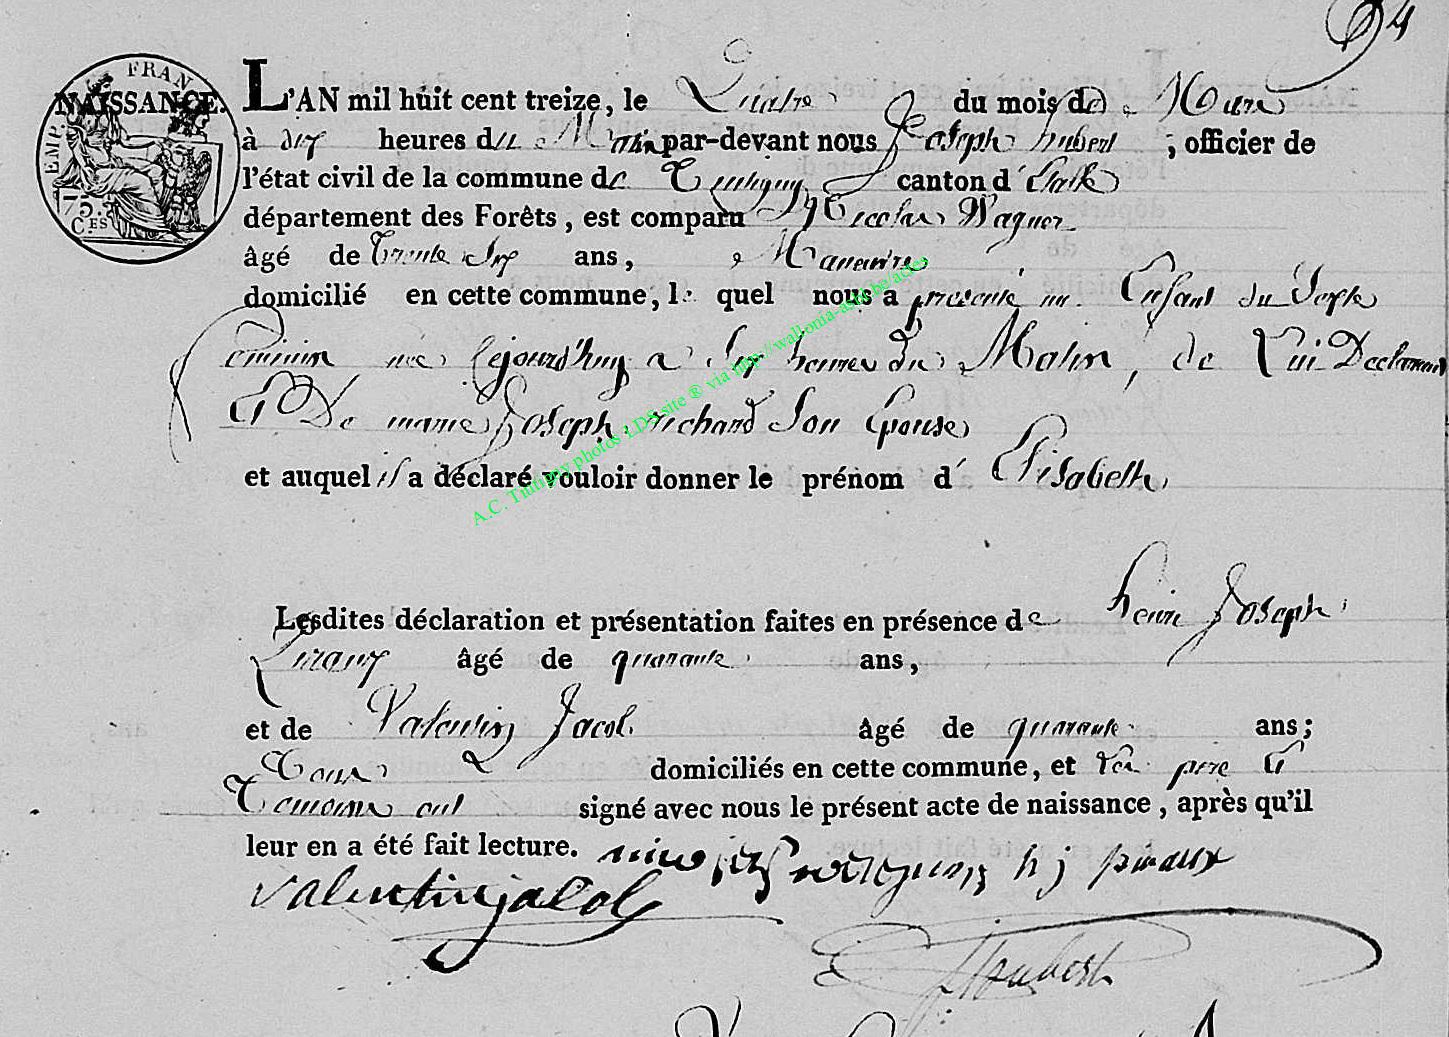 94
EMP. FRAN
75 C.ES
NAISSANCE. L'AN mil huit cent treize, le Quatre du mois de Mars
à dix heures du Matin par-devant nous Joseph hubert ; officier de
l'état civil de la commune de Tintigny canton d'Etalle
département des Forêts, est comparu Nicolas Wagner
âgé de trente Six ans, Manœuvre
domicilié en cette commune, le quel nous a présenté un Enfant du Sexe
féminin née cejourd'huy a Six heures du Matin, de Lui Déclarant
Et De marie Joseph richard Son Epouse
et auquel il a déclaré vouloir donner le prénom d'Elisabeth
A.C. Tintigny photos LDS site ® via http://wallonia-asbl.be/actes
Lesdites déclaration et présentation faites en présence de henri Joseph
âgé de quarante ans,
et de Valentin Jacob âgé de quarante ans;
Tous domiciliés en cette commune, et Les père Et
Temoins ont signé avec nous le présent acte de naissance, après qu'il
leur en a été fait lecture.
valentin jacob
Jhubert